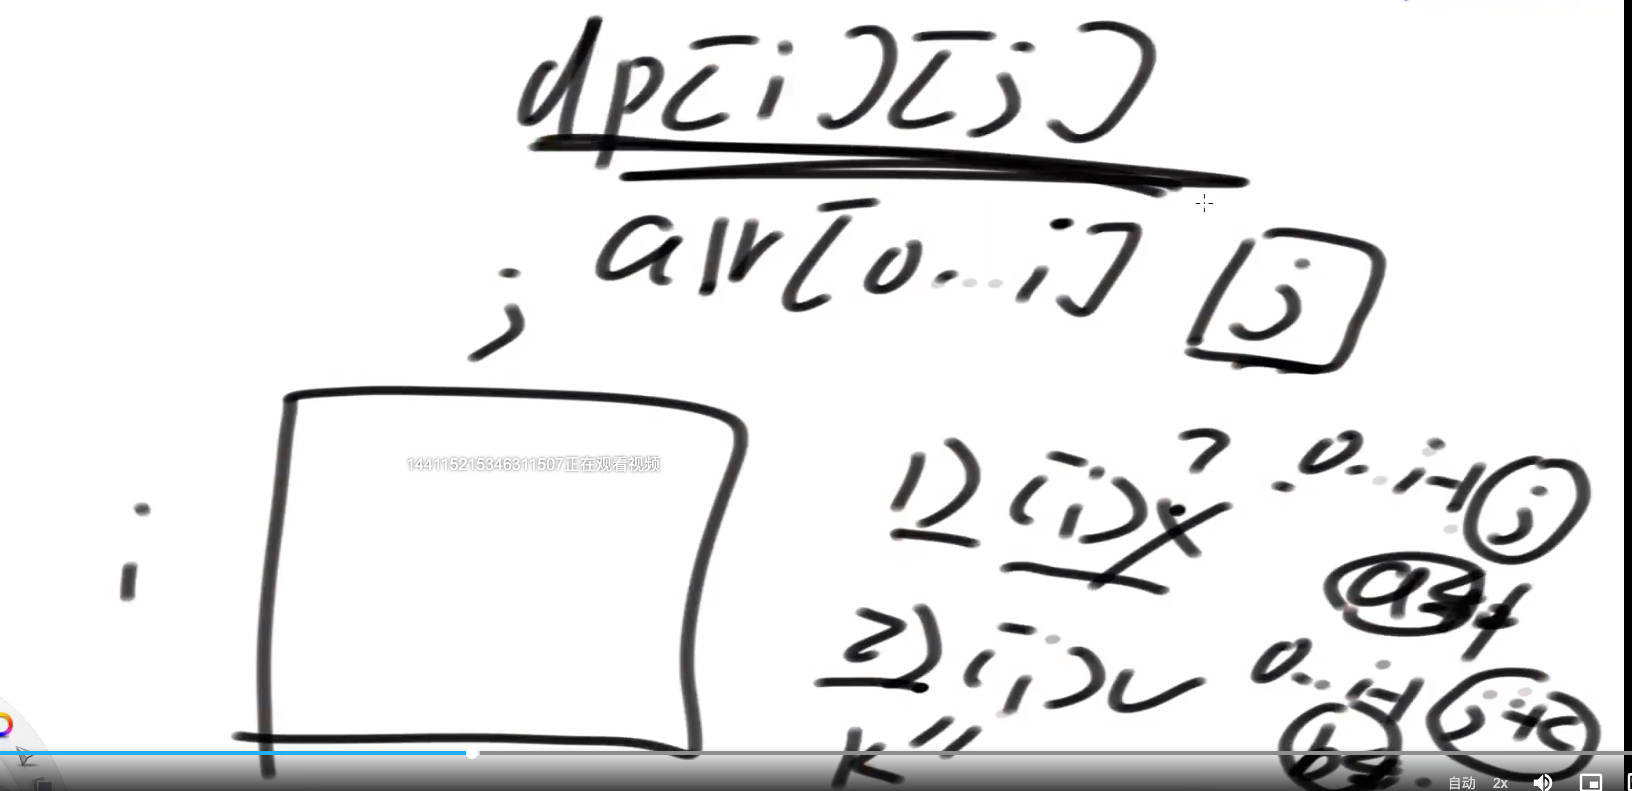 dp[i][j]
arr[0...i] j
j
144115215346311507正在观看视频
i
1) (i) X ? 0...i-1 j
a
2) (i) 0...i-1
k
b
自动 2x